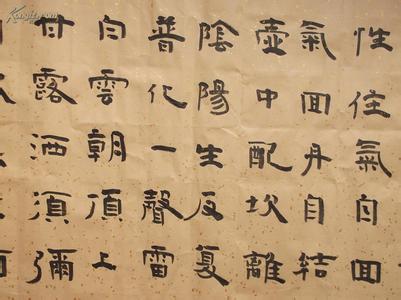 性住氣自回
氣回丹自結
壺中配坎離
陰陽生反复
普化一聲雷
白雲朝頂上
甘露洒須彌